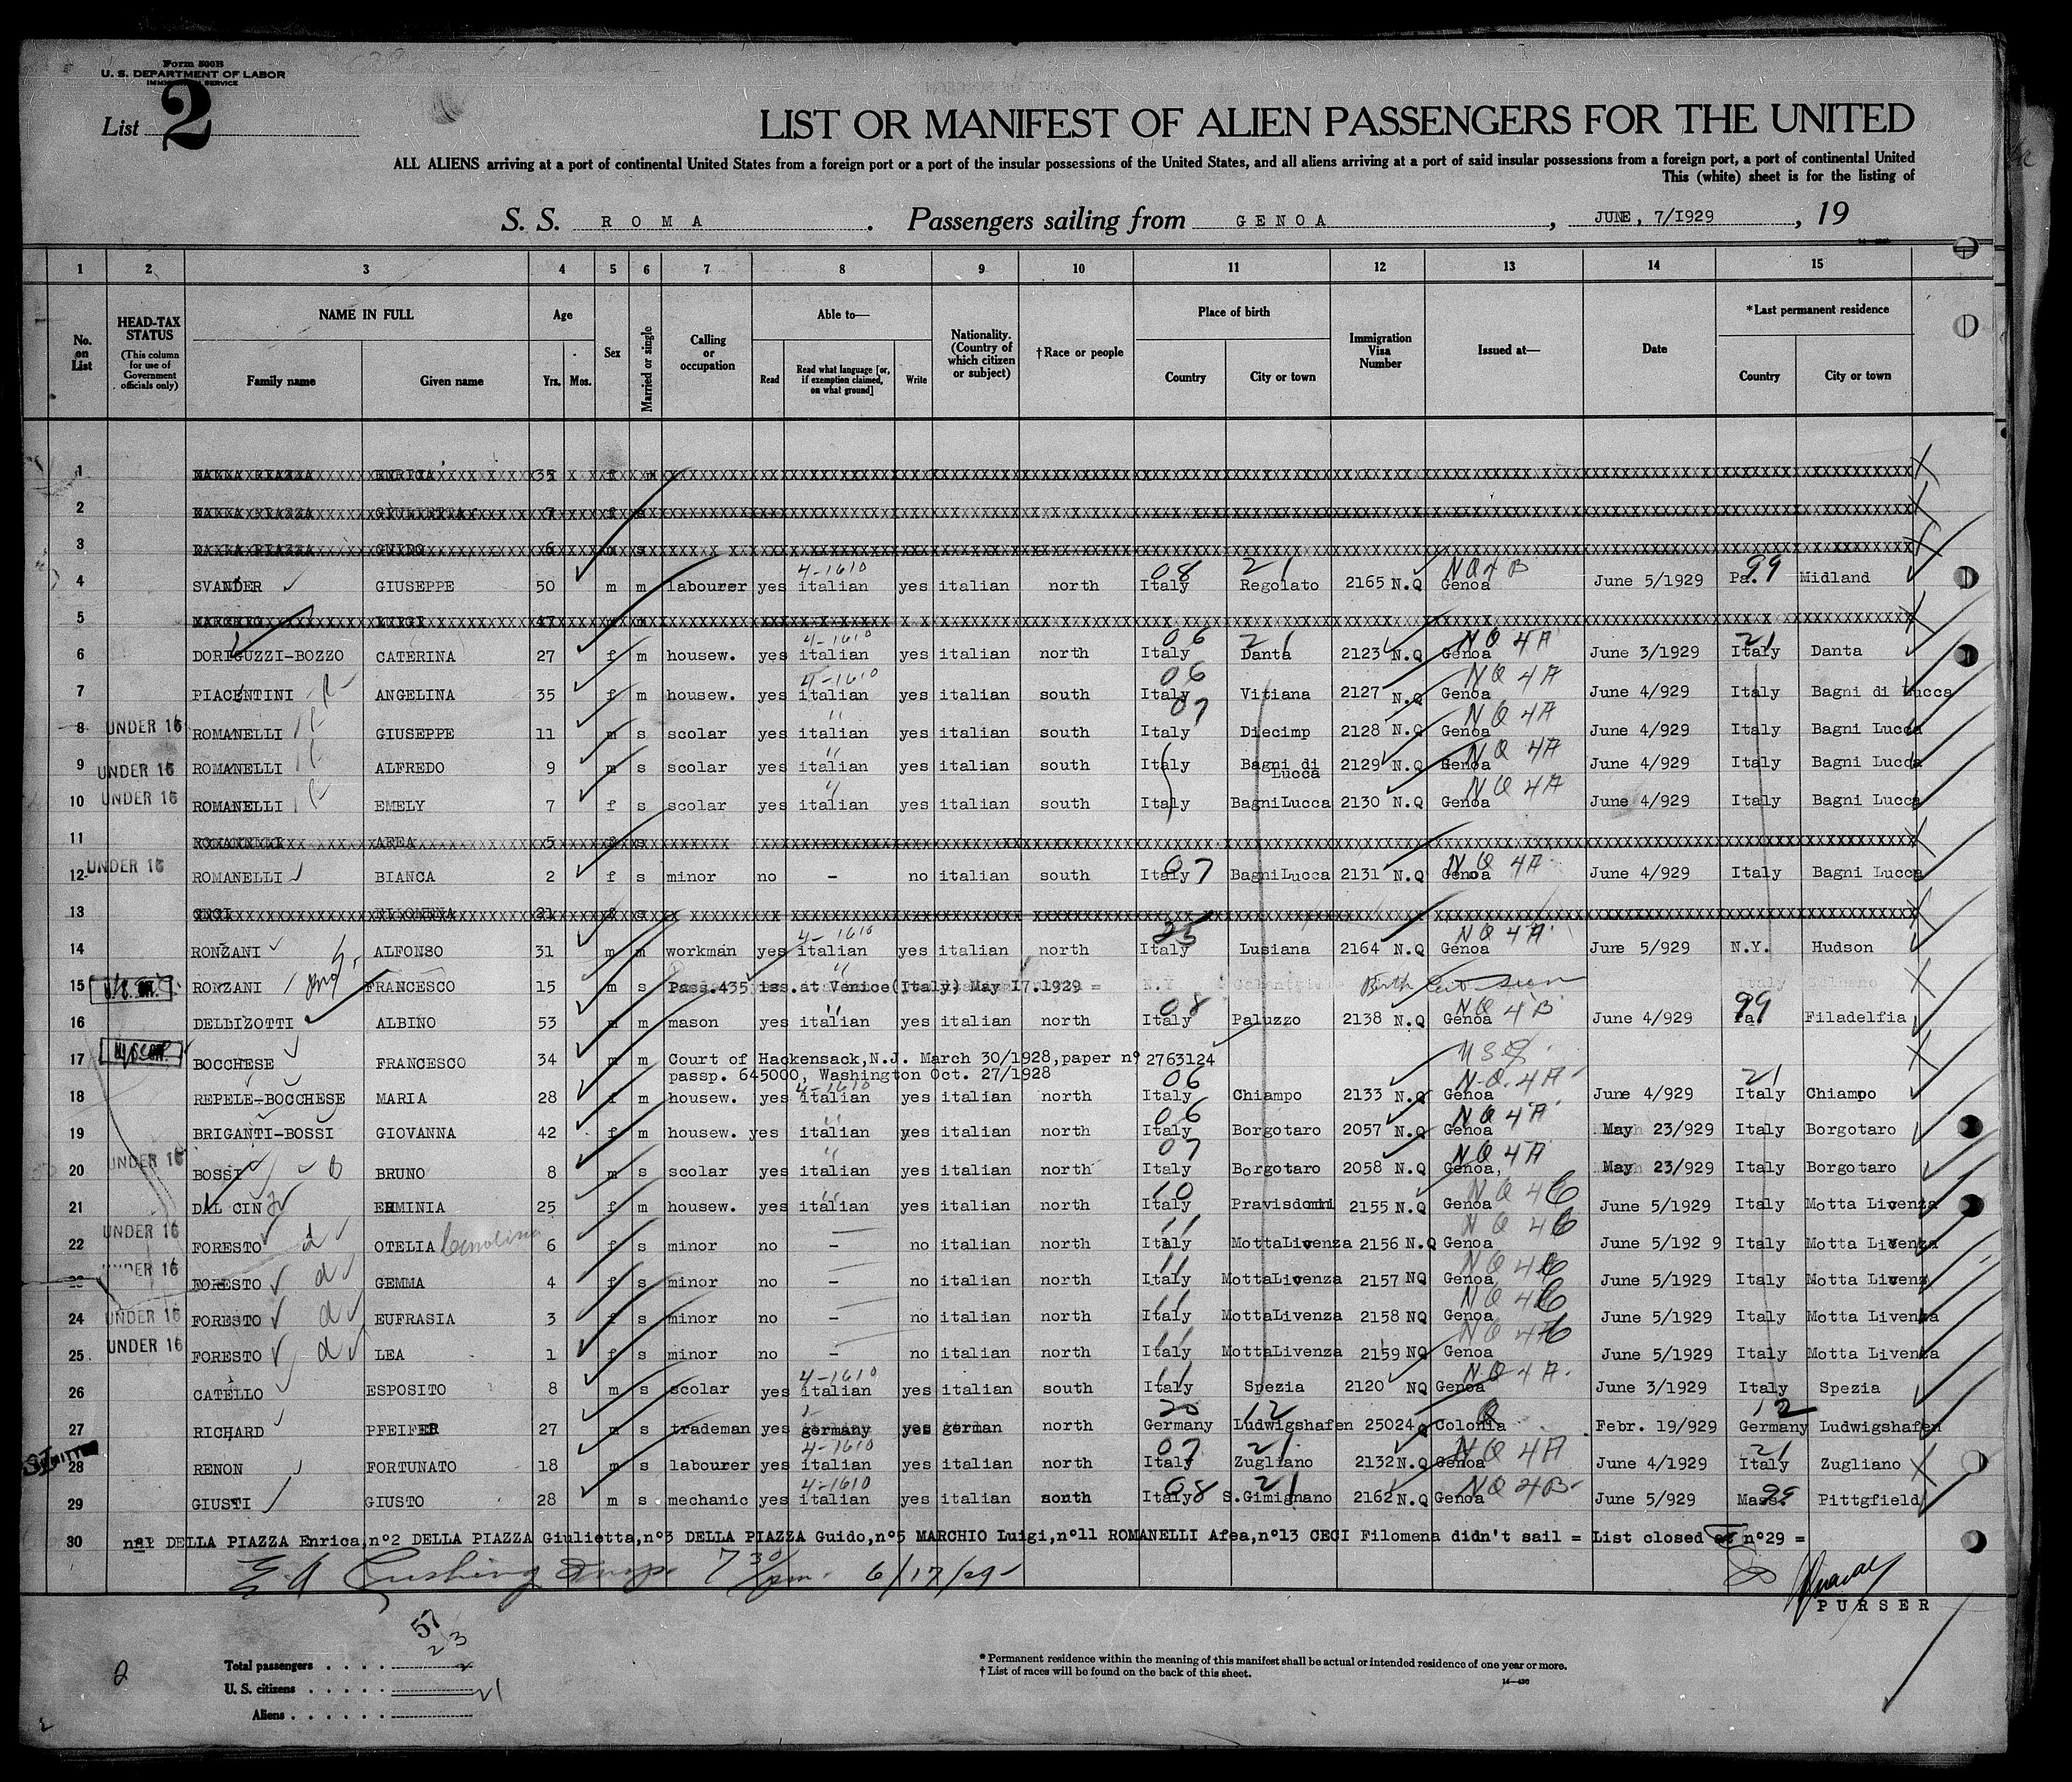 Form 500B
U. S. DEPARTMENT OF LABOR
IMMIGRATION SERVICE
List 2
LIST OR MANIFEST OF ALIEN PASSENGERS FOR THE UNITED
ALL ALIENS arriving at a port of continental United States from a foreign port or a port of the insular possessions of the United States, and all aliens arriving at a port of said insular possessions from a foreign port, a port of continental United
This (white) sheet is for the listing of
S. S. ROMA. Passengers sailing from GENOA, JUNE, 7/1929, 19
1 2 3 4 5 6 7 8 9 10 11 12 13 14 15
No. on List
HEAD-TAX STATUS (This column for use of Government officials only)
NAME IN FULL Family name Given name
Age Yrs. Mos.
Sex
Married or single
Calling or occupation
Able to— Read Read what language [or, if exemption claimed, on what ground] Write
Nationality. (Country of which citizen or subject)
†Race or people
Place of birth Country City or town
Immigration Visa Number
Issued at—
Date
*Last permanent residence Country City or town
1 ENRICA 35 f m
2 GIULIETTA 7 f s
3 GUIDO 6 m s
4 SVANDER GIUSEPPE 50 m m labourer yes 4-1610 italian yes italian north 08 Italy 21 Regolato 2165 N.Q NQ4B Genoa June 5/1929 Pa. 99 Midland
5 MARCHIO LUIGI 47 m m
6 DORIGUZZI-BOZZO CATERINA 27 f m housew. yes 4-1610 italian yes italian north 06 Italy 21 Danta 2123 N.Q NQ4A Genoa June 3/1929 21 Italy Danta
7 PIACENTINI ANGELINA 35 f m housew. yes 4-1610 italian yes italian south 06 Italy Vitiana 2127 N.Q NQ4A Genoa June 4/929 Italy Bagni di Lucca
8 UNDER 16 ROMANELLI GIUSEPPE 11 m s scolar yes " italian yes italian south 07 Italy Diecimp 2128 N.Q NQ4A Genoa June 4/929 Italy Bagni Lucca
9 UNDER 16 ROMANELLI ALFREDO 9 m s scolar yes " italian yes italian south Italy Bagni di Lucca 2129 N.Q NQ4A Genoa June 4/929 Italy Bagni Lucca
10 UNDER 16 ROMANELLI EMELY 7 f s scolar yes " italian yes italian south Italy BagniLucca 2130 N.Q NQ4A Genoa June 4/929 Italy Bagni Lucca
11 ROMANELLI AFEA 5 f s
12 UNDER 16 ROMANELLI BIANCA 2 f s minor no - no italian south Italy 07 BagniLucca 2131 N.Q NQ4A Genoa June 4/929 Italy Bagni Lucca
13 CECI FILOMENA 21 f s
14 RONZANI ALFONSO 31 m m workman yes 4-1610 italian yes italian north 25 Italy Lusiana 2164 N.Q NQ4A Genoa June 5/929 N.Y. Hudson
15 RONZANI FRANCESCO 15 m s Pass.435 iss.at Venice(Italy) May 17.1929 = Birth
16 DELLIZOTTI ALBINO 53 m m mason yes " italian yes italian north 08 Italy Paluzzo 2138 N.Q NQ4B Genoa June 4/929 Pa 99 Filadelfia
17 BOCCHESE FRANCESCO 34 m m Court of Hackensack,N.J. March 30/1928,paper n° 2763124
passp. 645000, Washington Oct. 27/1928
18 REPELE-BOCCHESE MARIA 28 f m housew. yes 4-1610 italian yes italian north 06 Italy Chiampo 2133 N.Q NQ4A Genoa June 4/929 21 Italy Chiampo
19 BRIGANTI-BOSSI GIOVANNA 42 f m housew. yes " italian yes italian north 06 Italy Borgotaro 2057 N.Q NQ4A Genoa May 23/929 Italy Borgotaro
20 UNDER 16 BOSSI BRUNO 8 m s scolar yes " italian yes italian north 07 Italy Borgotaro 2058 N.Q NQ4A Genoa, May 23/929 Italy Borgotaro
21 DAL CIN ERMINIA 25 f m housew. yes " italian yes italian north 10 Italy Pravisdomini 2155 N.Q NQ4C Genoa June 5/1929 Italy Motta Livenza
22 UNDER 16 FORESTO OTELIA 6 f s minor no - no italian north 11 Italy MottaLivenza 2156 N.Q NQ4C Genoa June 5/192 9 Italy Motta Livenza
23 UNDER 16 FORESTO GEMMA 4 f s minor no - no italian north 11 Italy MottaLivenza 2157 NQ NQ4C Genoa June 5/1929 Italy Motta Livenz
24 UNDER 16 FORESTO EUFRASIA 3 f s minor no - no italian north 11 Italy MottaLivenza 2158 NQ NQ4C Genoa June 5/1929 Italy Motta Livenza
25 UNDER 16 FORESTO LEA 1 f s minor no - no italian north 11 Italy MottaLivenza 2159 NQ NQ4C Genoa June 5/1929 Italy Motta Livenza
26 CATELLO ESPOSITO 8 m s scolar yes 4-1610 italian yes italian south 11 Italy Spezia 2120 NQ NQ4A Genoa June 3/1929 Italy Spezia
27 RICHARD PFEIFER 27 m s trademan yes germany yes german north 20 Germany 12 Ludwigshafen 25024 Q Colonia Febr. 19/929 12 Germany Ludwigshafen
28 RENON FORTUNATO 18 m s labourer yes 4-1610 italian yes italian north 07 Italy 21 Zugliano 2132 N.Q NQ4A Genoa June 4/1929 21 Italy Zugliano
29 GIUSTI GIUSTO 28 m s mechanic yes 4-1610 italian yes italian south Italy 08 21 S.Gimignano 2162 N.Q NQ4B Genoa June 5/929 Mass. 99 Pittgfield
30 n°1 DELLA PIAZZA Enrica,n°2 DELLA PIAZZA Giulietta,n°3 DELLA PIAZZA Guido,n°5 MARCHIO Luigi,n°11 ROMANELLI Afea,n°13 CECI Filomena didn't sail = List closed at n°29 =
E A Cushing 7 30/pm. 6/17/29
PURSER
57
23
Total passengers . . . .
U. S. citizens . . . . . 2
Aliens . . . . . . 21
2
* Permanent residence within the meaning of this manifest shall be actual or intended residence of one year or more.
† List of races will be found on the back of this sheet.
14—430